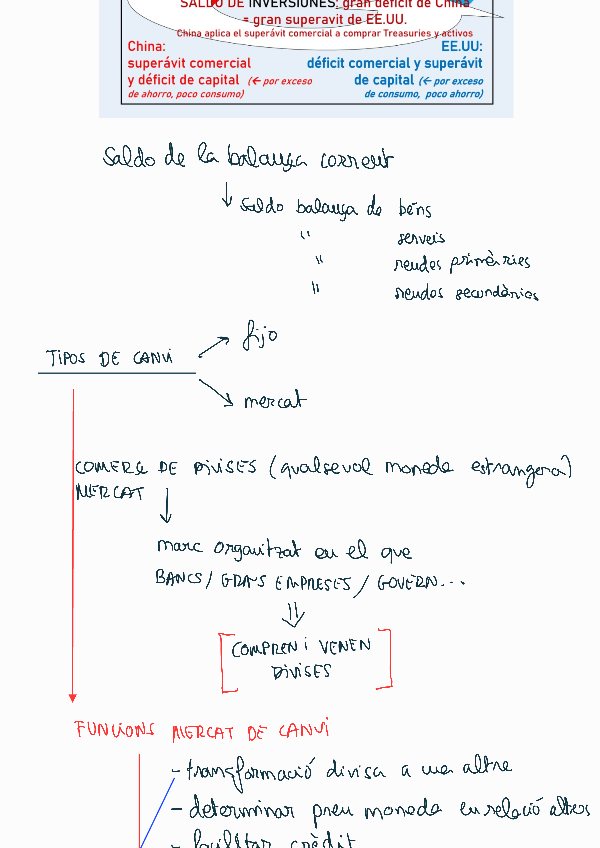 SALDO DE INVERSIONES: gran déficit de China
= gran superavit de EE.UU.
China aplica el superávit comercial a comprar Treasuries y activos
China:
superávit comercial
y déficit de capital (← por exceso
de ahorro, poco consumo)
EE.UU:
déficit comercial y superávit
de capital (← por exceso
de consumo, poco ahorro)
Saldo de la balança corrent
↓ Saldo balança de béns
" serveis
" rendes primàries
" rendes secundàries
TIPOS DE CANVI
fijo
mercat
COMERÇ DE DIVISES (qualsevol moneda estrangera)
MERCAT
marc organitzat en el que
BANCS / GRANS EMPRESES / GOVERN...
[COMPREN i VENEN
DIVISES]
FUNCIONS MERCAT DE CANVI
- transformació divisa a una altre
- determinar preu moneda en relació altres
- facilitar crèdit